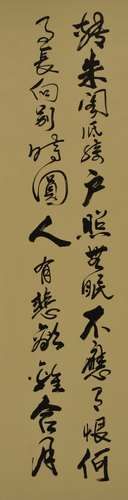 轉朱閣低綺戶照無眠不應有恨何
事長向別時圓人有悲歡離合月